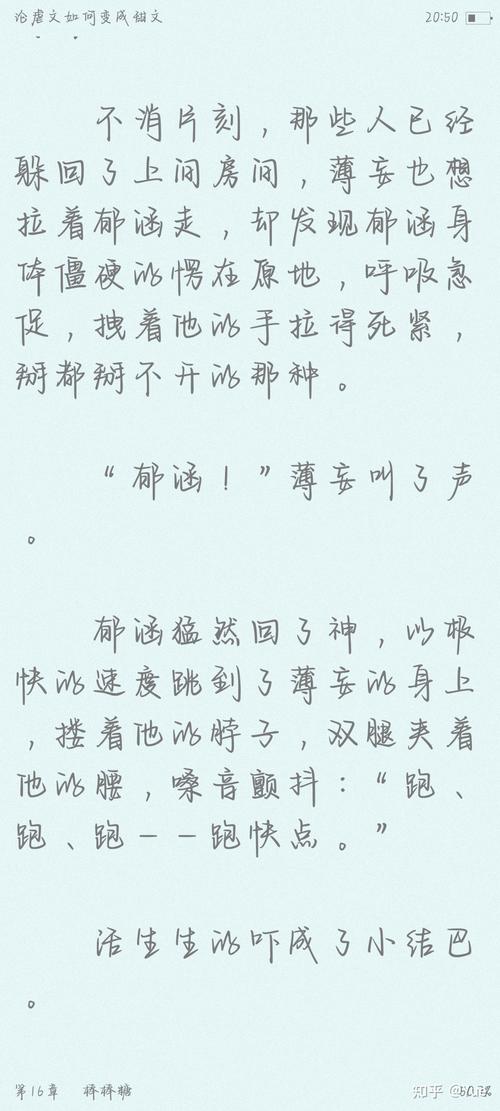 论虐文如何变成甜文 20:50
不消片刻，那些人已经
躲回了上间房间，薄妄也想
拉着郁涵走，却发现郁涵身
体僵硬的愣在原地，呼吸急
促，拽着他的手拉得死紧，
掰都掰不开的那种。
“郁涵！”薄妄叫了声
。
郁涵猛然回了神，以极
快的速度跳到了薄妄的身上
，搂着他的脖子，双腿夹着
他的腰，嗓音颤抖：“跑、
跑、跑——跑快点。”
活生生的吓成了小结巴
。
第16章 棒棒糖
知乎